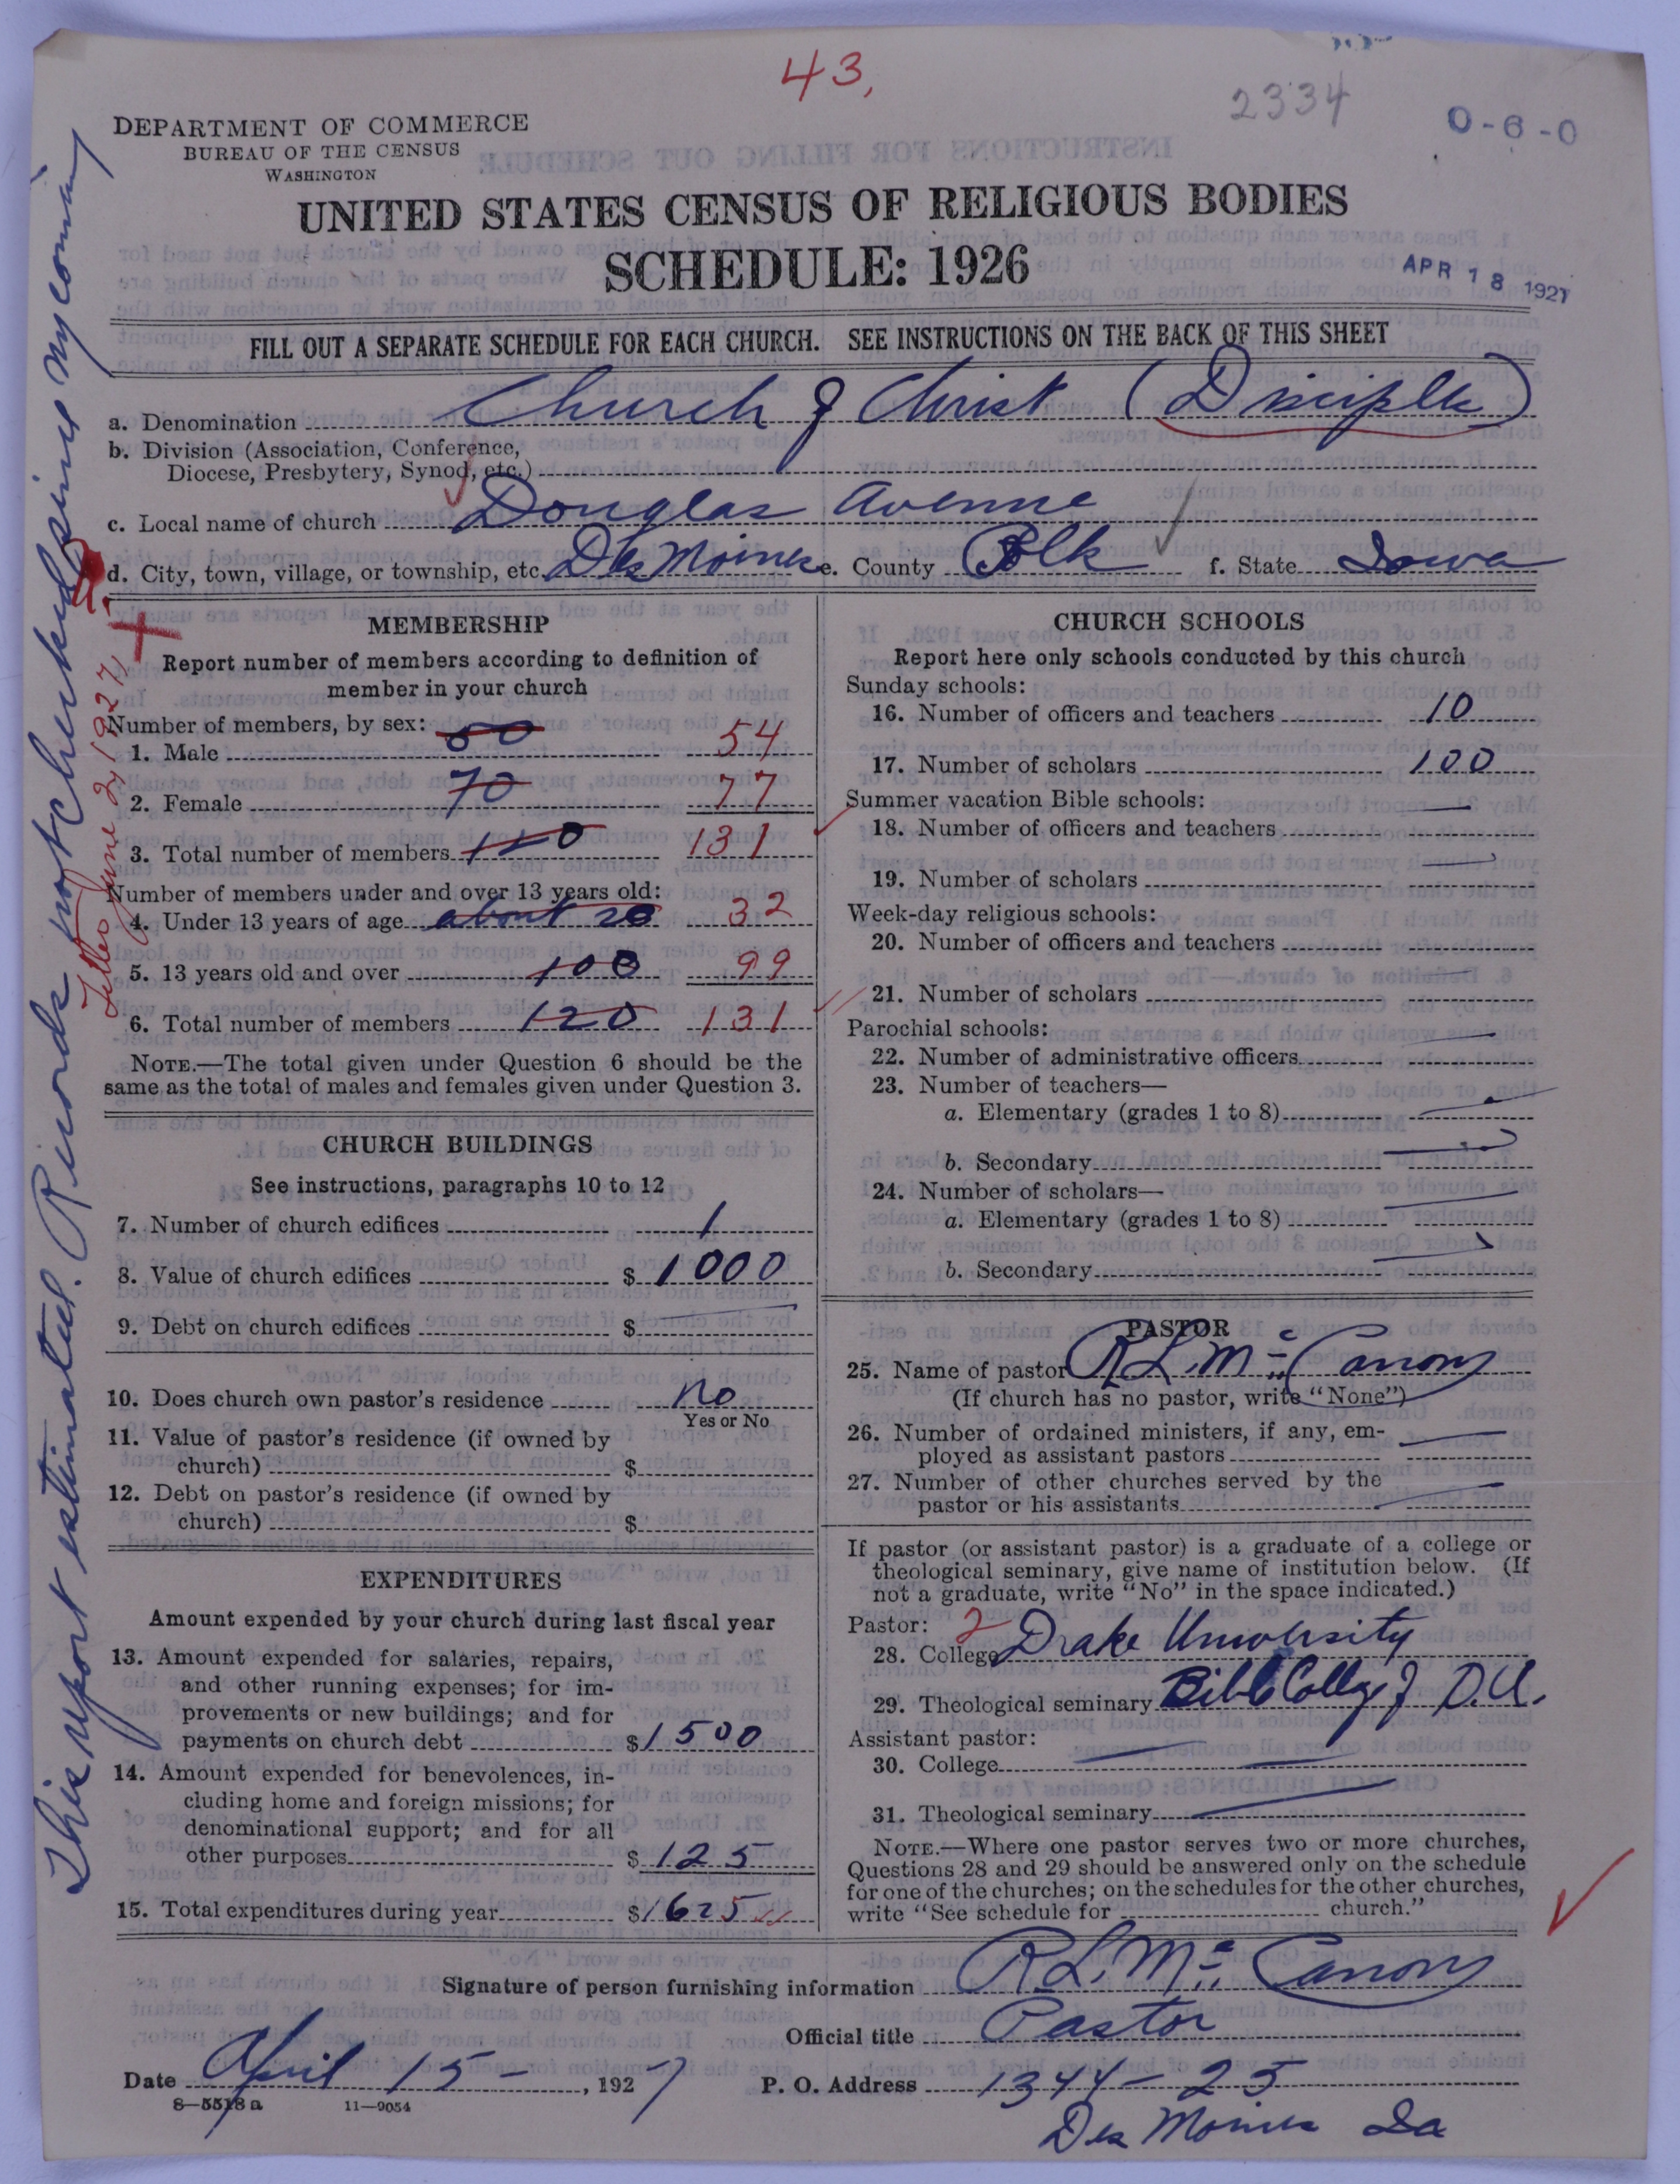 43,
2334
0-6-0
DEPARTMENT OF COMMERCE
BUREAU OF THE CENSUS
WASHINGTON
UNITED STATES CENSUS OF RELIGIOUS BODIES
SCHEDULE: 1926
APR 18 1927
FILL OUT A SEPARATE SCHEDULE FOR EACH CHURCH. SEE INSTRUCTIONS ON THE BACK OF THIS SHEET
a. Denomination Church of Christ (Disciples)
b. Division (Association, Conference,
Diocese, Presbytery, Synod, etc.)
c. Local name of church Douglas Avenue
d. City, town, village, or township, etc. Des Moines e. County Polk f. State Iowa
MEMBERSHIP
Report number of members according to definition of
member in your church
Number of members, by sex:
1. Male 50 54
2. Female 70 77
3. Total number of members 120 131
Number of members under and over 13 years old:
4. Under 13 years of age about 20 32
5. 13 years old and over 100 99
6. Total number of members 120 131
NOTE.—The total given under Question 6 should be the
same as the total of males and females given under Question 3.
CHURCH BUILDINGS
See instructions, paragraphs 10 to 12
7. Number of church edifices 1
8. Value of church edifices $ 1000
9. Debt on church edifices $
10. Does church own pastor's residence No
Yes or No
11. Value of pastor's residence (if owned by
church) $
12. Debt on pastor's residence (if owned by
church) $
EXPENDITURES
Amount expended by your church during last fiscal year
13. Amount expended for salaries, repairs,
and other running expenses; for im-
provements or new buildings; and for
payments on church debt $ 1500
14. Amount expended for benevolences, in-
cluding home and foreign missions; for
denominational support; and for all
other purposes $ 125
15. Total expenditures during year $ 1625
CHURCH SCHOOLS
Report here only schools conducted by this church
Sunday schools:
16. Number of officers and teachers 10
17. Number of scholars 100
Summer vacation Bible schools:
18. Number of officers and teachers
19. Number of scholars
Week-day religious schools:
20. Number of officers and teachers
21. Number of scholars
Parochial schools:
22. Number of administrative officers
23. Number of teachers—
a. Elementary (grades 1 to 8)
b. Secondary
24. Number of scholars—
a. Elementary (grades 1 to 8)
b. Secondary
PASTOR
25. Name of pastor R L. Mc Canon
(If church has no pastor, write "None")
26. Number of ordained ministers, if any, em-
ployed as assistant pastors
27. Number of other churches served by the
pastor or his assistants
If pastor (or assistant pastor) is a graduate of a college or
theological seminary, give name of institution below. (If
not a graduate, write "No" in the space indicated.)
Pastor: 2
28. College Drake University
29. Theological seminary Bible College of D.U.
Assistant pastor:
30. College
31. Theological seminary
NOTE.—Where one pastor serves two or more churches,
Questions 28 and 29 should be answered only on the schedule
for one of the churches; on the schedules for the other churches,
write "See schedule for church."
Signature of person furnishing information R L. Mc Canon
Official title Pastor
Date April 15 - , 1927 P. O. Address 1344-25
8—5518a 11—9054
Des Moines Ia
This report estimated. Records not checked since my coming
Letter June 2, 1927